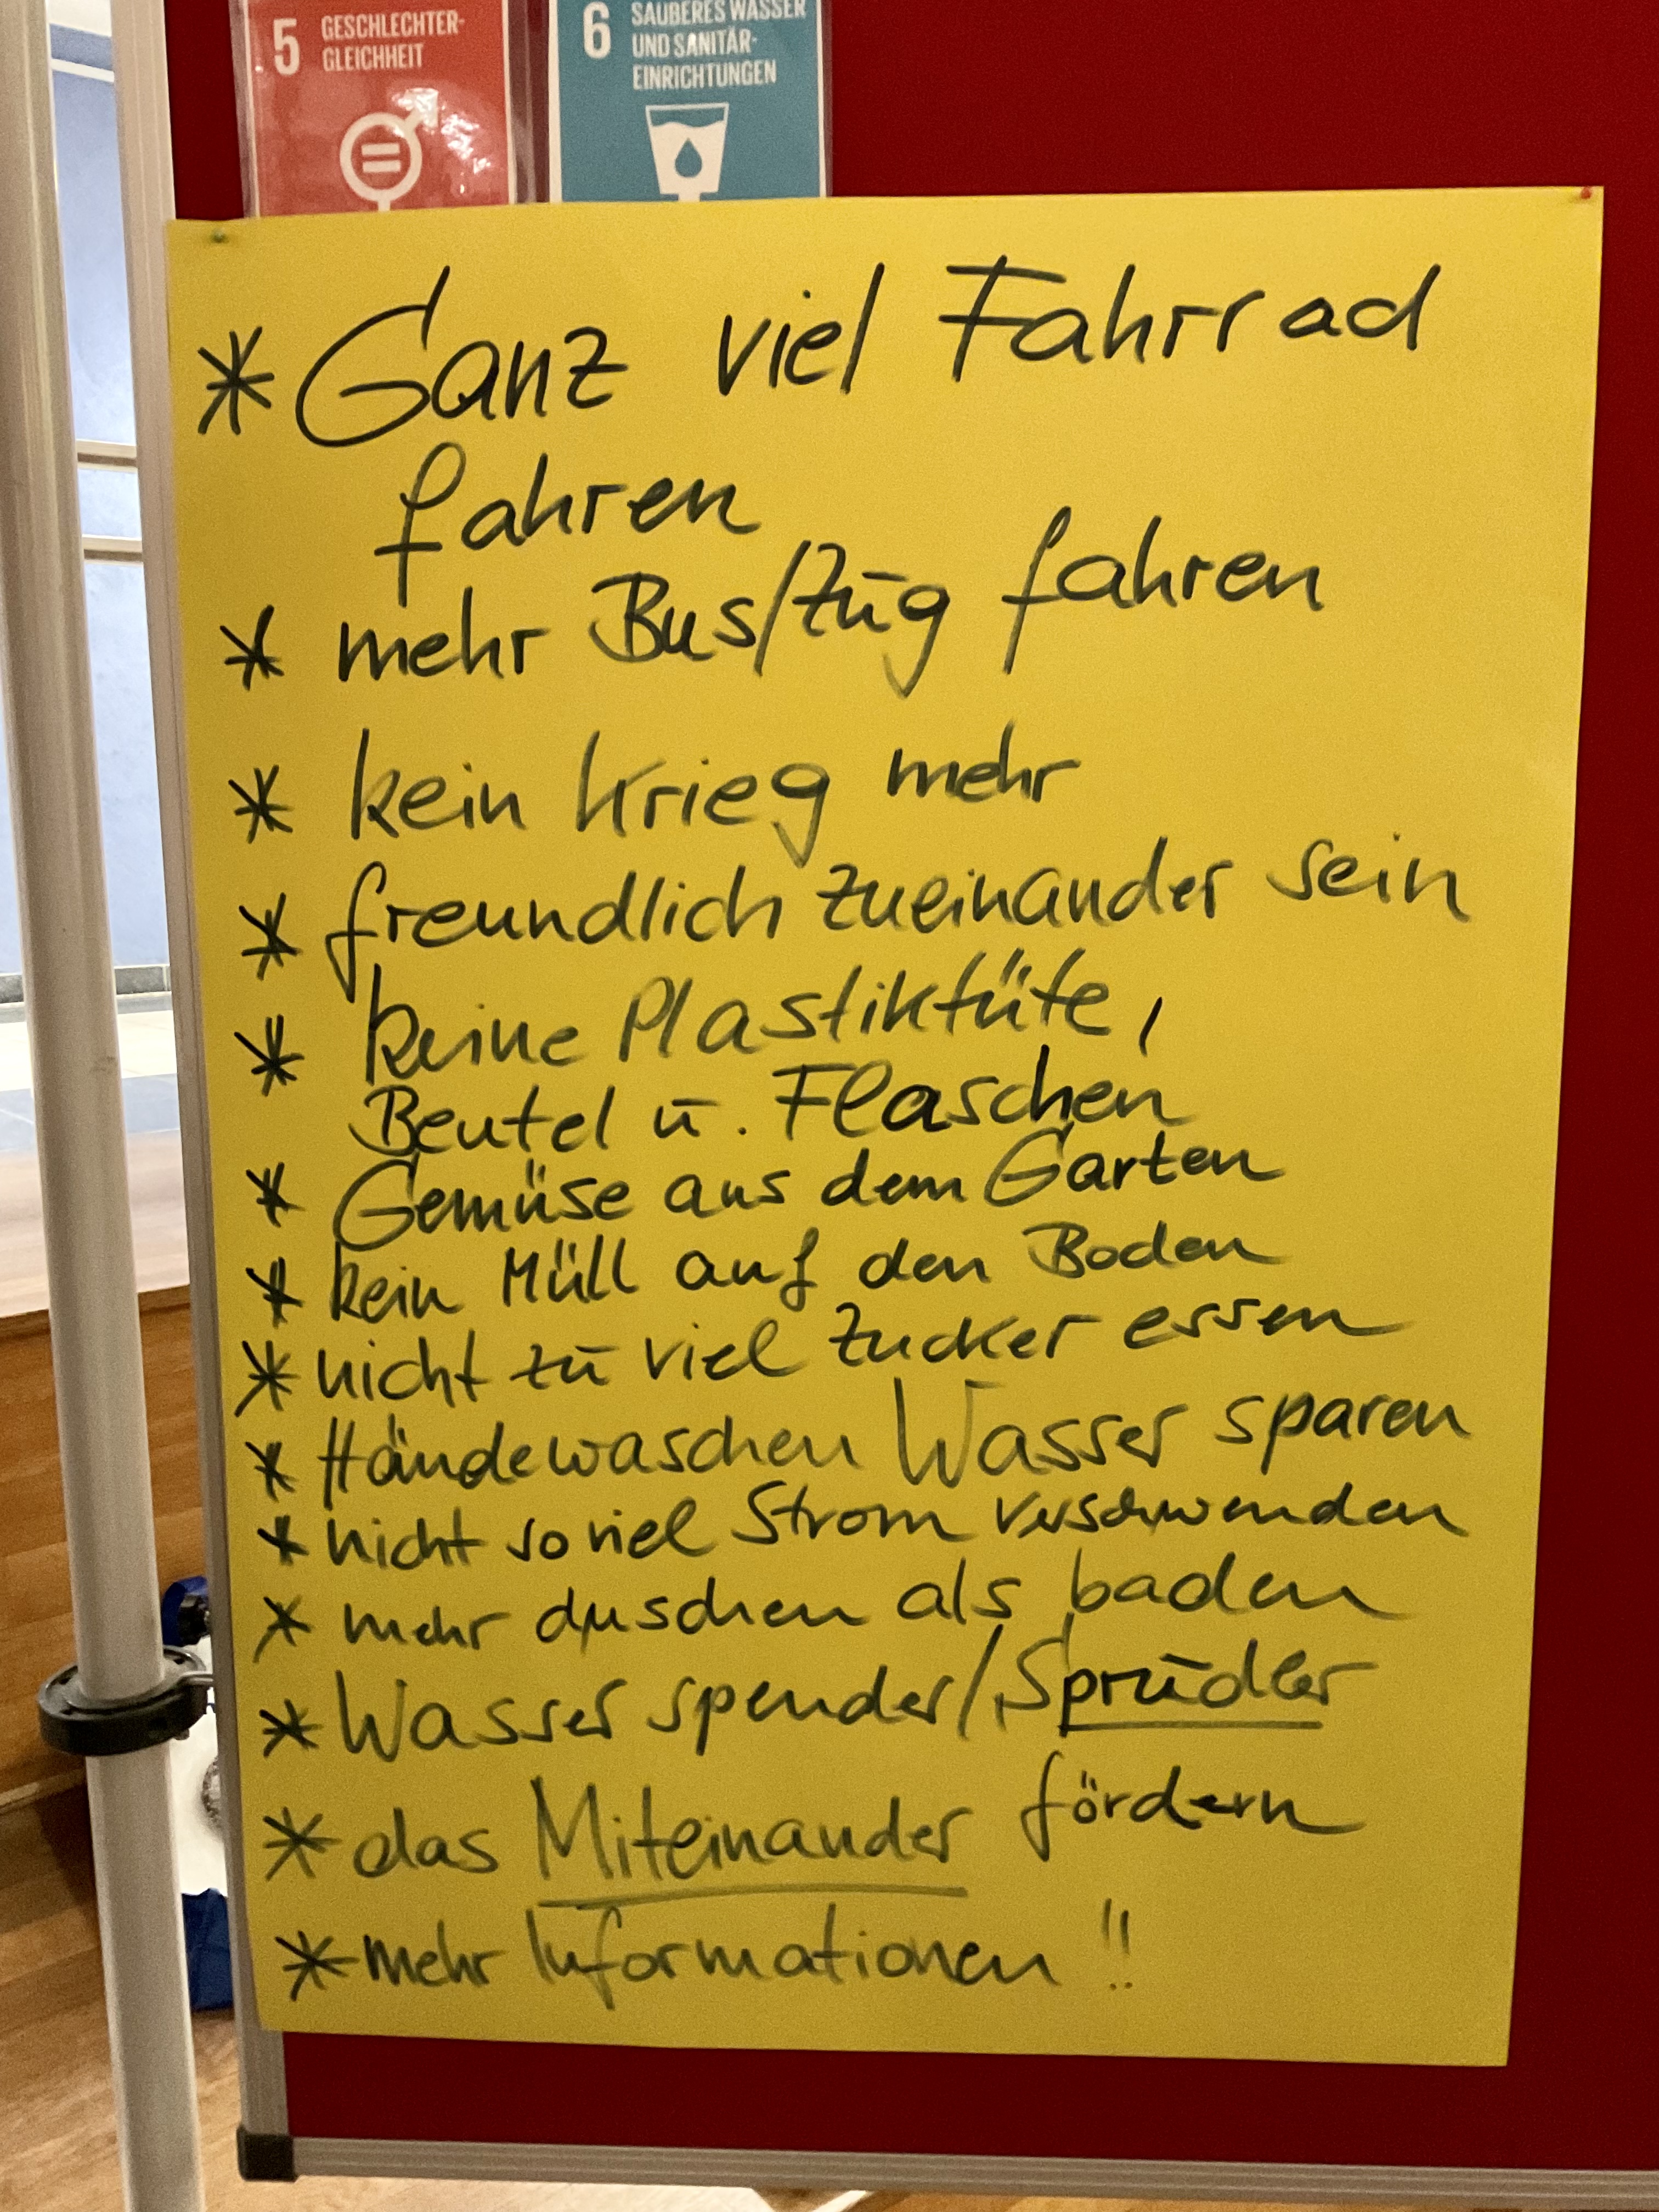 5 GESCHLECHTER-
GLEICHHEIT
6 SAUBERES WASSER
UND SANITÄR-
EINRICHTUNGEN
* Ganz viel Fahrrad
fahren
* mehr Bus/Zug fahren
* kein Krieg mehr
* freundlich zueinander sein
* keine Plastiktüte,
Beutel u. Flaschen
* Gemüse aus dem Garten
* kein Müll auf den Boden
* nicht zu viel Zucker essen
* Händewaschen Wasser sparen
* nicht so viel Strom verschwenden
* mehr duschen als baden
* Wasser spender/Sprudler
* das Miteinander fördern
* mehr Informationen !!